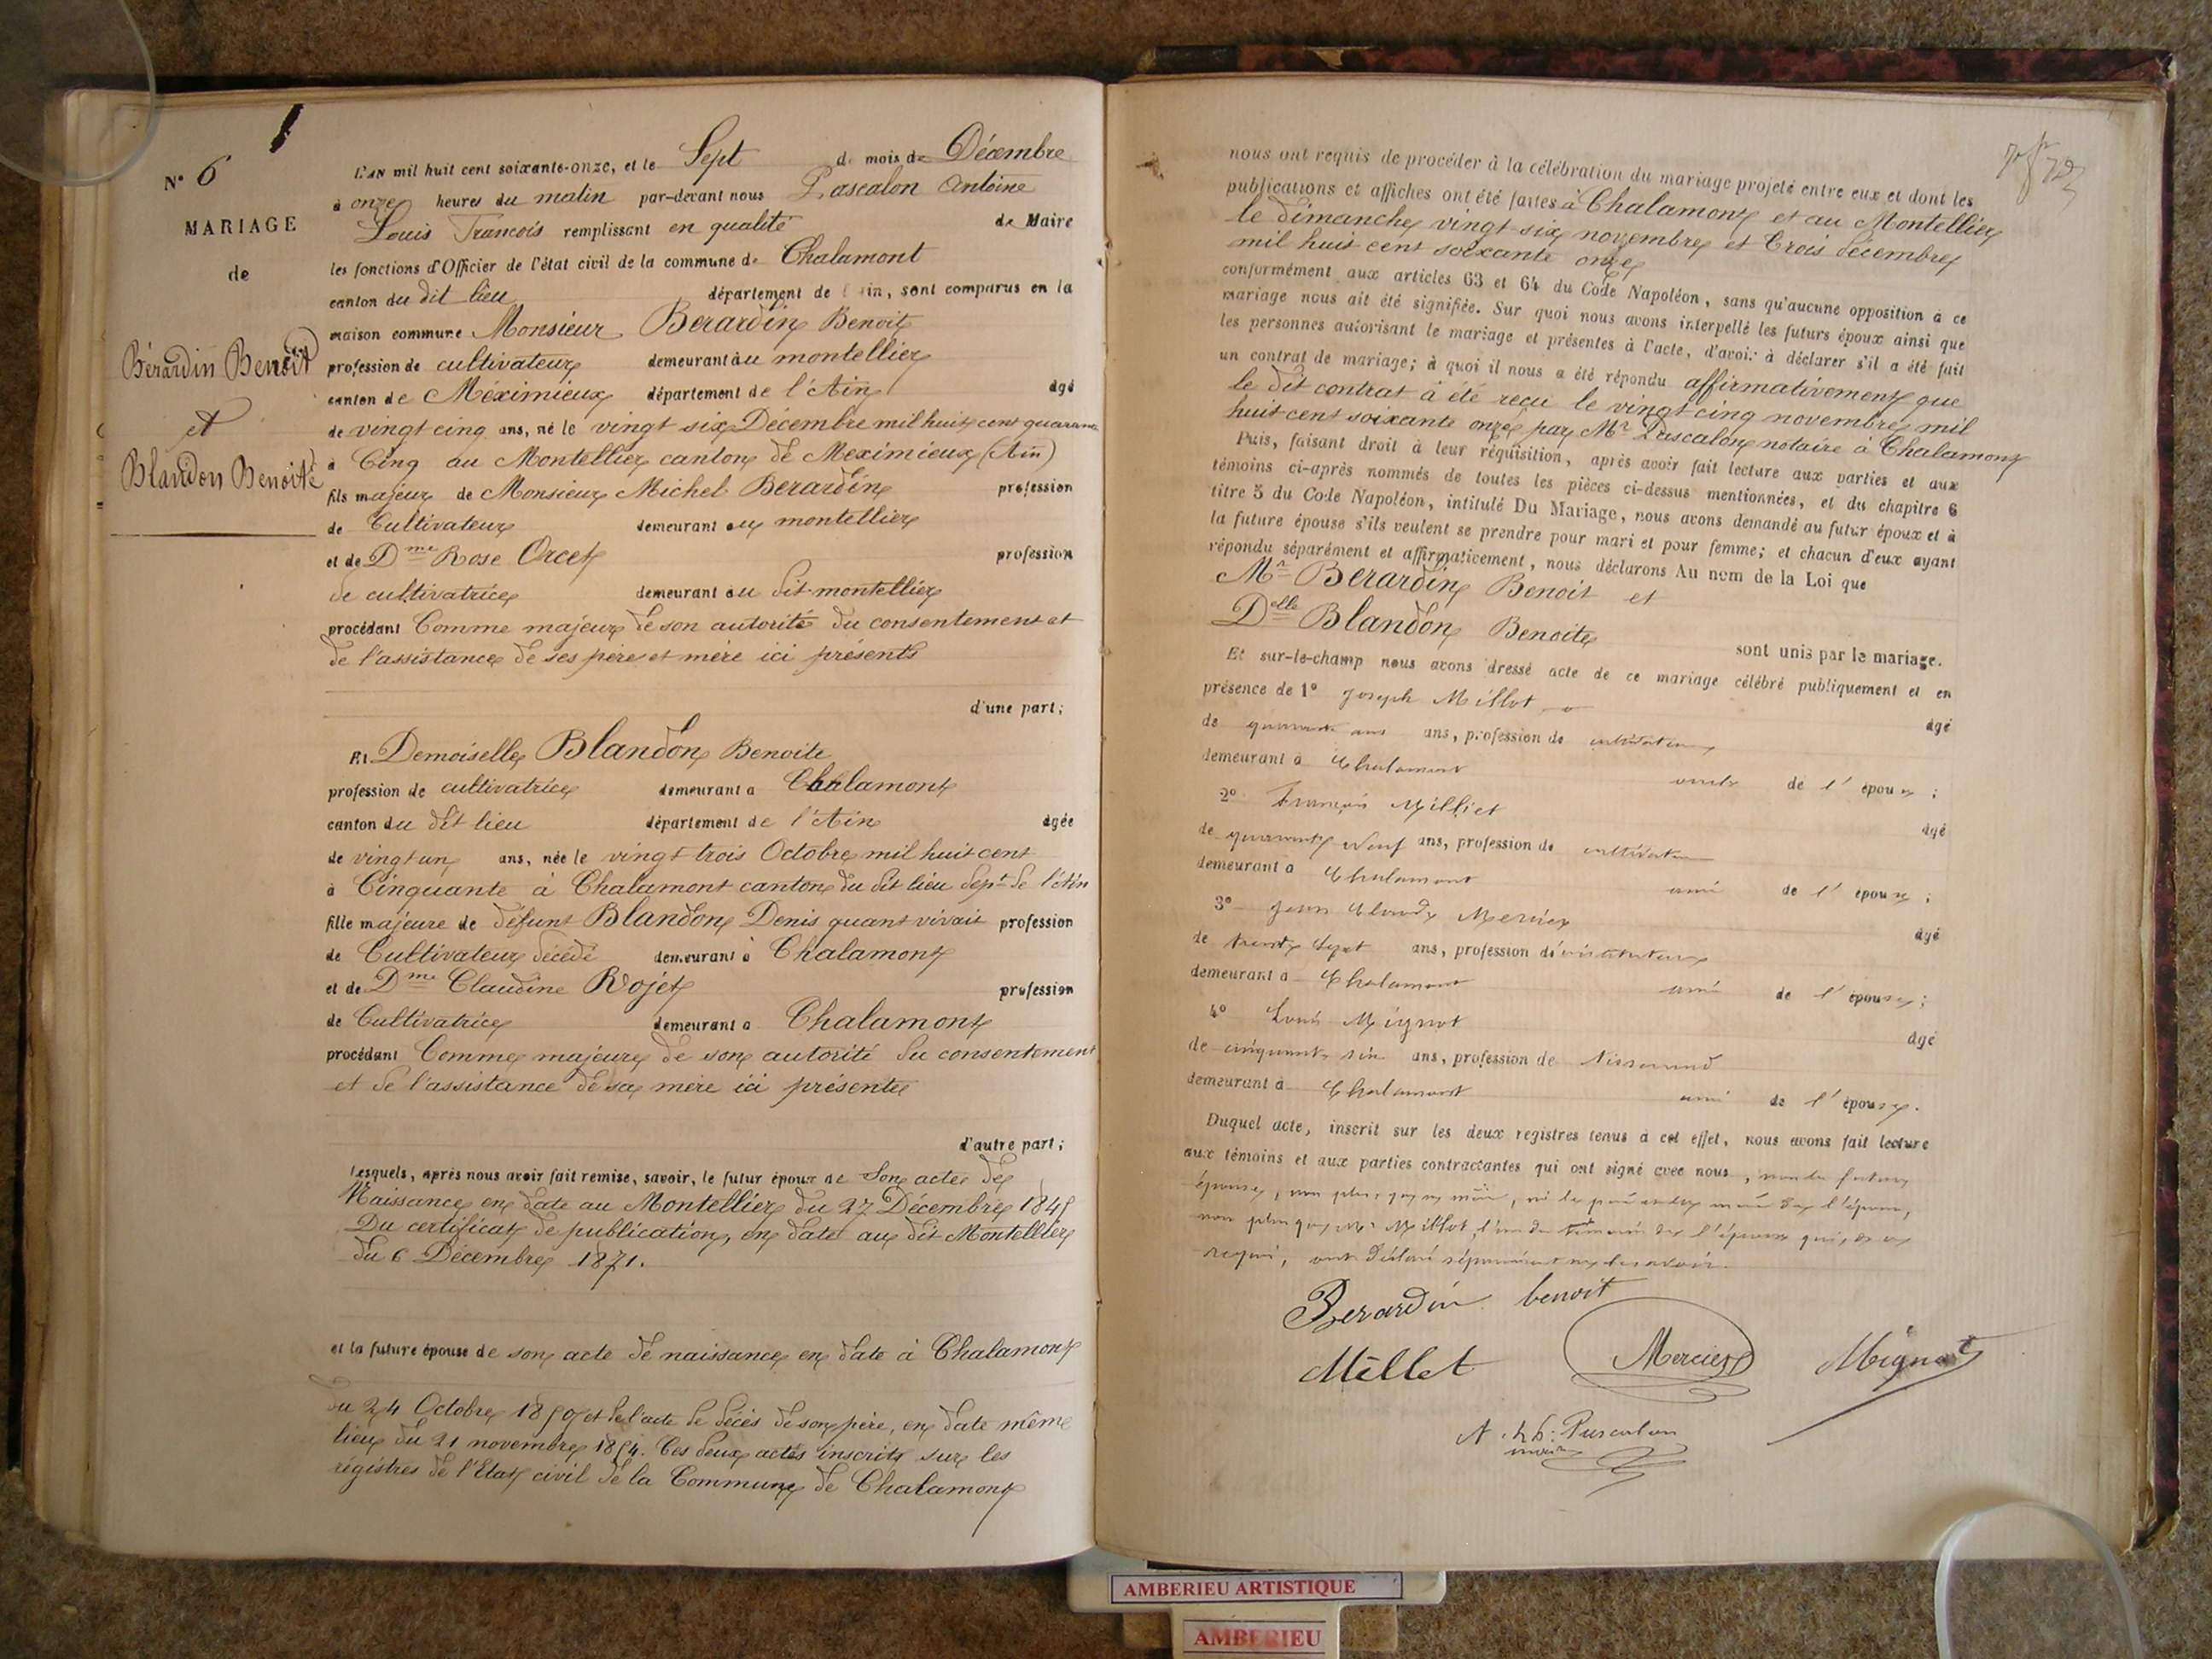 N° 6
MARIAGE
de
Bérardin Benoit
et
Blandon Benoite
L'AN mil huit cent soixante-onze, et le Sept du mois de Décembre
à onze heures du matin par-devant nous Pascalon Antoine
Louis François remplissant en qualité de Maire
les fonctions d'Officier de l'état civil de la commune de Chalamont
canton du dit lieu département de l'Ain, sont comparus en la
maison commune Monsieur Berardin Benoit
profession de cultivateur demeurant au montellier
canton de Méximieux département de l'Ain âgé
de vingt cinq ans, né le vingt six Décembre mil huit cent quarante
à Cinq au Montellier canton de Meximieux (Ain)
fils majeur de Monsieur Michel Berardin profession
de Cultivateur demeurant au montellier
et de Dme Rose Orcet profession
de cultivatrice demeurant au dit montellier
procédant Comme majeur de son autorité du consentement et
de l'assistance de ses père et mère ici présents
d'une part;
Et Demoiselle Blandon Benoite
profession de cultivatrice demeurant à Chalamont
canton du dit lieu département de l'Ain âgée
de vingt un ans, née le vingt trois Octobre mil huit cent
à Cinquante à Chalamont canton du dit lieu dept de l'Ain
fille majeure de défunt Blandon Denis quant vivait profession
de Cultivateur décédé demeurant à Chalamont
et de Dme Claudine Rojet profession
de Cultivatrice demeurant à Chalamont
procédant Comme majeure de son autorité du consentement
et de l'assistance de sa mère ici présente
d'autre part;
Lesquels, après nous avoir fait remise, savoir, le futur époux de Son acte de
Naissance en date au Montellier du 27 Décembre 1845
Du certificat de publication, en date au dit Montellier
du 6 Décembre 1871.
et la future épouse de son acte de naissance en date à Chalamont
du 24 Octobre 1850 et de l'acte de décès de son père, en date même
lieu du 21 novembre 1854. Ces deux actes inscrits sur les
régistres de l'Etat civil de la Commune de Chalamont
nous ont requis de procéder à la célébration du mariage projeté entre eux et dont les
publications et affiches ont été faites à Chalamont et au Montellier
le dimanche vingt six novembre et Trois décembre
mil huit cent soixante onze
conformément aux articles 63 et 64 du Code Napoléon, sans qu'aucune opposition à ce
mariage nous ait été signifiée. Sur quoi nous avons interpellé les futurs époux ainsi que
les personnes autorisant le mariage et présentes à l'acte, d'avoir à déclarer s'il a été fait
un contrat de mariage; à quoi il nous a été répondu affirmativement que
le dit contrat à été recu le vingt cinq novembre mil
huit cent soixante onze par Mr Pascalon notaire à Chalamont
Puis, faisant droit à leur réquisition, après avoir fait lecture aux parties et aux
témoins ci-après nommés de toutes les pièces ci-dessus mentionnées, et du chapitre 6
titre 5 du Code Napoléon, intitulé Du Mariage, nous avons demandé au futur époux et à
la future épouse s'ils veulent se prendre pour mari et pour femme; et chacun d'eux ayant
répondu séparément et affirmativement, nous déclarons Au nom de la Loi que
Mr Berardin Benoit et
Delle Blandon Benoite
sont unis par le mariage.
Et sur-le-champ nous avons dressé acte de ce mariage célébré publiquement et en
présence de 1° Joseph Millot
âgé
de quarante ans ans, profession de cultivateur
demeurant à Chalamont oncle de l'épouse;
2° François Milliet
âgé
de quarante neuf ans, profession de cultivateur
demeurant à Chalamont ami de l'épouse;
3° Jean Claude Mercier
âgé
de trente Sept ans, profession d'instituteur
demeurant à Chalamont ami de l'épouse;
4° Louis Mignot
âgé
de cinquante six ans, profession de Tisserand
demeurant à Chalamont ami de l'épouse.
Duquel acte, inscrit sur les deux registres tenus à cet effet, nous avons fait lecture
aux témoins et aux parties contractantes qui ont signé avec nous, non la future
épouse, non plus que sa mère, ni les père et mère de l'époux,
non plus que Mr Millot, l'un des témoins de l'épouse qui, de ce
requis, ont déclaré séparément ne le savoir.
Berardin benoit
Millet Mercier Mignot
Pascalon
maire
AMBERIEU ARTISTIQUE
AMBERIEU